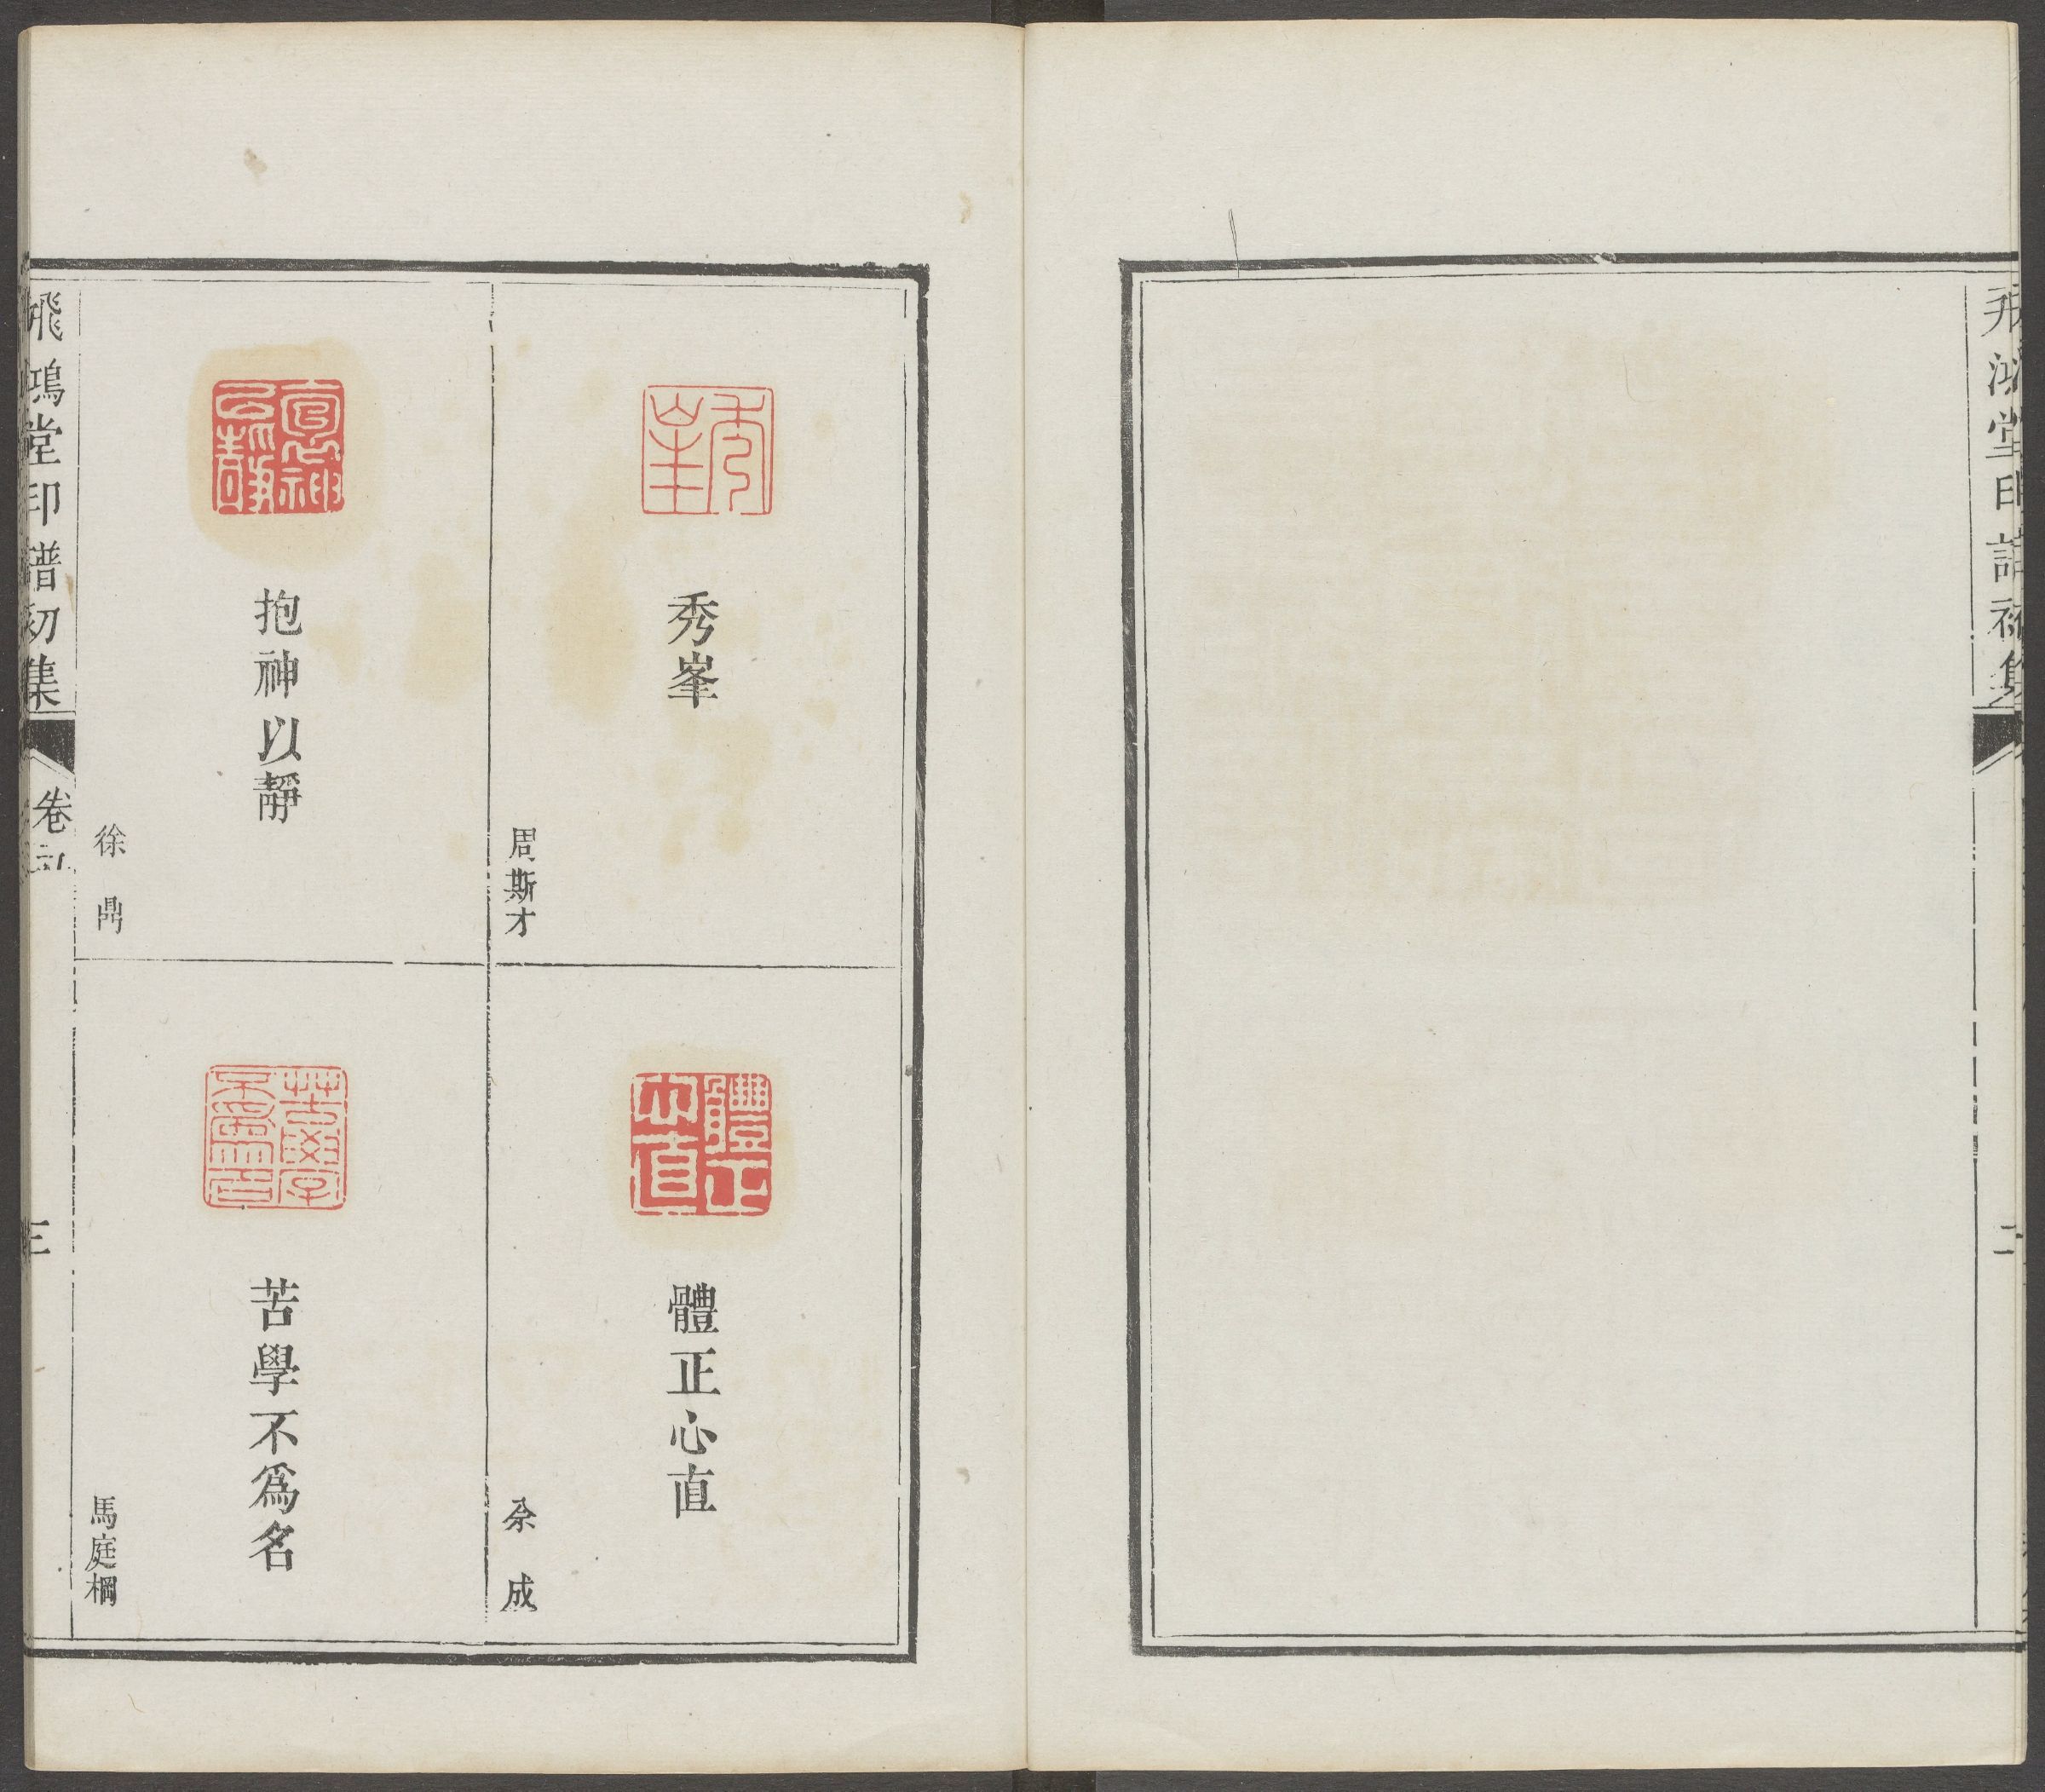 飛鴻堂印譜初集
二
秀峯
周斯才
體正心直
佘成
抱神以靜
徐鼎
苦學不爲名
馬庭棡
飛鴻堂印譜初集
卷六
三